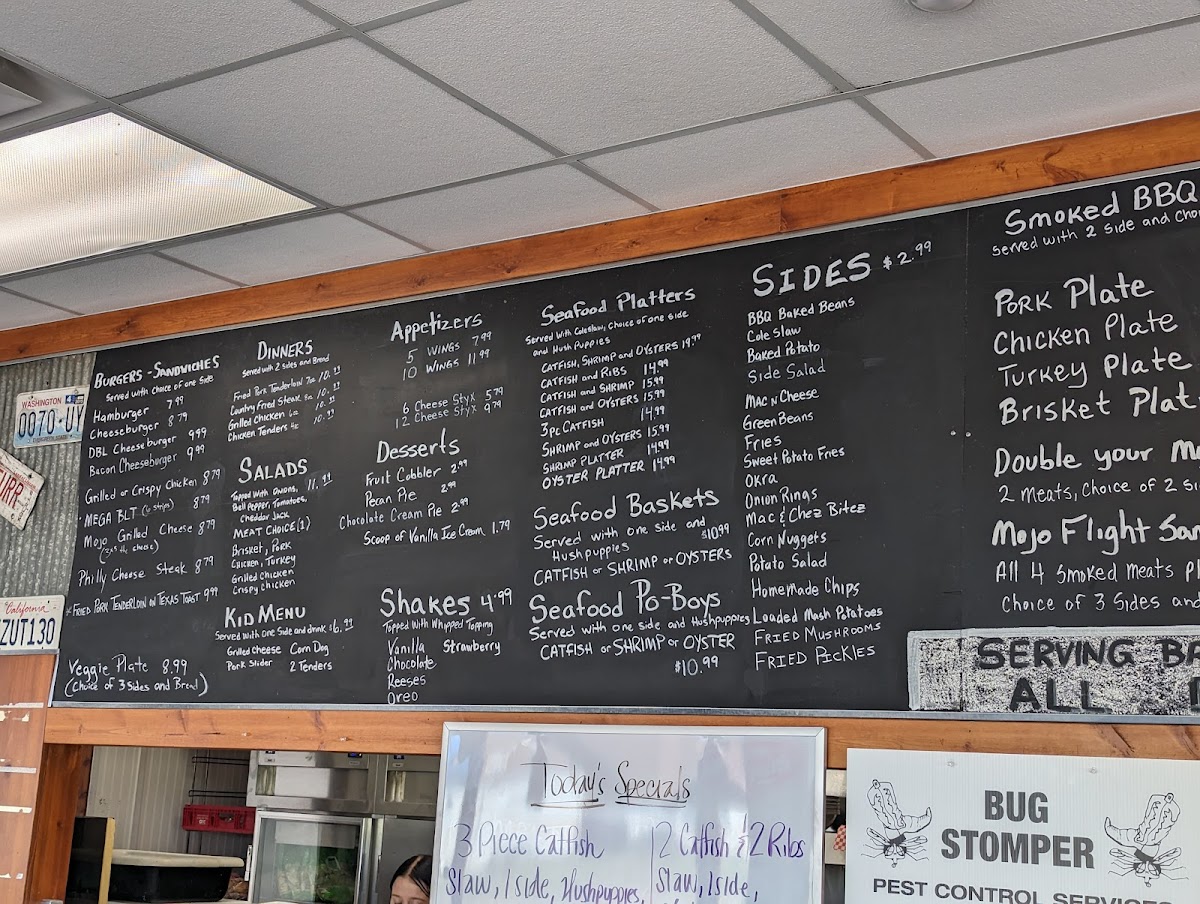 WASHINGTON
0070-UY
EVERGREEN STATE
URR
California
ZUT130
BURGERS - SANDWICHES
Served with Choice of one Side
Hamburger 7.99
Cheeseburger 8.79
DBL Cheeseburger 9.99
Bacon Cheeseburger 9.99
Grilled or Crispy Chicken 8.79
MEGA BLT (6 strips) 8.79
Mojo Grilled Cheese 8.79
(3x's the cheese)
Philly Cheese Steak 8.79
*FRIED PORK TENDERLOIN ON TEXAS TOAST 9.99
Veggie Plate 8.99
(Choice of 3 Sides and Bread)
DINNERS
Served with 2 Sides and Bread
Fried Pork Tenderloin
Country Fried Steak
Grilled Chicken
Chicken Tenders
SALADS
Topped With Onions,
Bell Pepper, Tomatoes,
Cheddar Jack
MEAT CHOICE (1)
Brisket, Pork
Chicken, Turkey
Grilled Chicken
Crispy Chicken
KID MENU
Served with One Side and drink $6.99
Grilled Cheese Corn Dog
Pork Slider 2 Tenders
Appetizers
5 WINGS 7.99
10 WINGS 11.99
6 Cheese Styx 5.79
12 Cheese Styx 9.79
Desserts
Fruit Cobbler 2.99
Pecan Pie 2.99
Chocolate Cream Pie 2.99
Scoop of Vanilla Ice Cream 1.79
Shakes 4.99
Topped With Whipped Topping
Vanilla Strawberry
Chocolate
Reeses
Oreo
Seafood Platters
Served With Coleslaw, Choice of one Side
and Hush Puppies
CATFISH, SHRIMP and OYSTERS 19.99
CATFISH and RIBS 14.99
CATFISH and SHRIMP 15.99
CATFISH and OYSTERS 15.99
3pc CATFISH 14.99
SHRIMP and OYSTERS 15.99
SHRIMP PLATTER 14.99
OYSTER PLATTER 14.99
Seafood Baskets
Served with one side and
Hushpuppies $10.99
CATFISH or SHRIMP or OYSTERS
Seafood Po-Boys
Served with one side and Hushpuppies
CATFISH or SHRIMP or OYSTER
$10.99
SIDES $2.99
BBQ Baked Beans
Cole Slaw
Baked Potato
Side Salad
Mac N Cheese
Green Beans
Fries
Sweet Potato Fries
Okra
Onion Rings
Mac & Chez Bitez
Corn Nuggets
Potato Salad
Homemade Chips
Loaded Mash Potatoes
FRIED MUSHROOMS
FRIED PICKLES
Smoked BBQ
Served with 2 Side and Cho
Pork Plate
Chicken Plate
Turkey Plate
Brisket Plat
Double your M
2 Meats, Choice of 2 Si
Mojo Flight Sa
All 4 Smoked Meats Pl
Choice of 3 Sides and
SERVING BA
ALL D
Today's Specials
3 Piece Catfish
Slaw, 1 side, Hushpuppies,
2 Catfish & 2 Ribs
Slaw, 1 side,
BUG
STOMPER
PEST CONTROL SERVICES